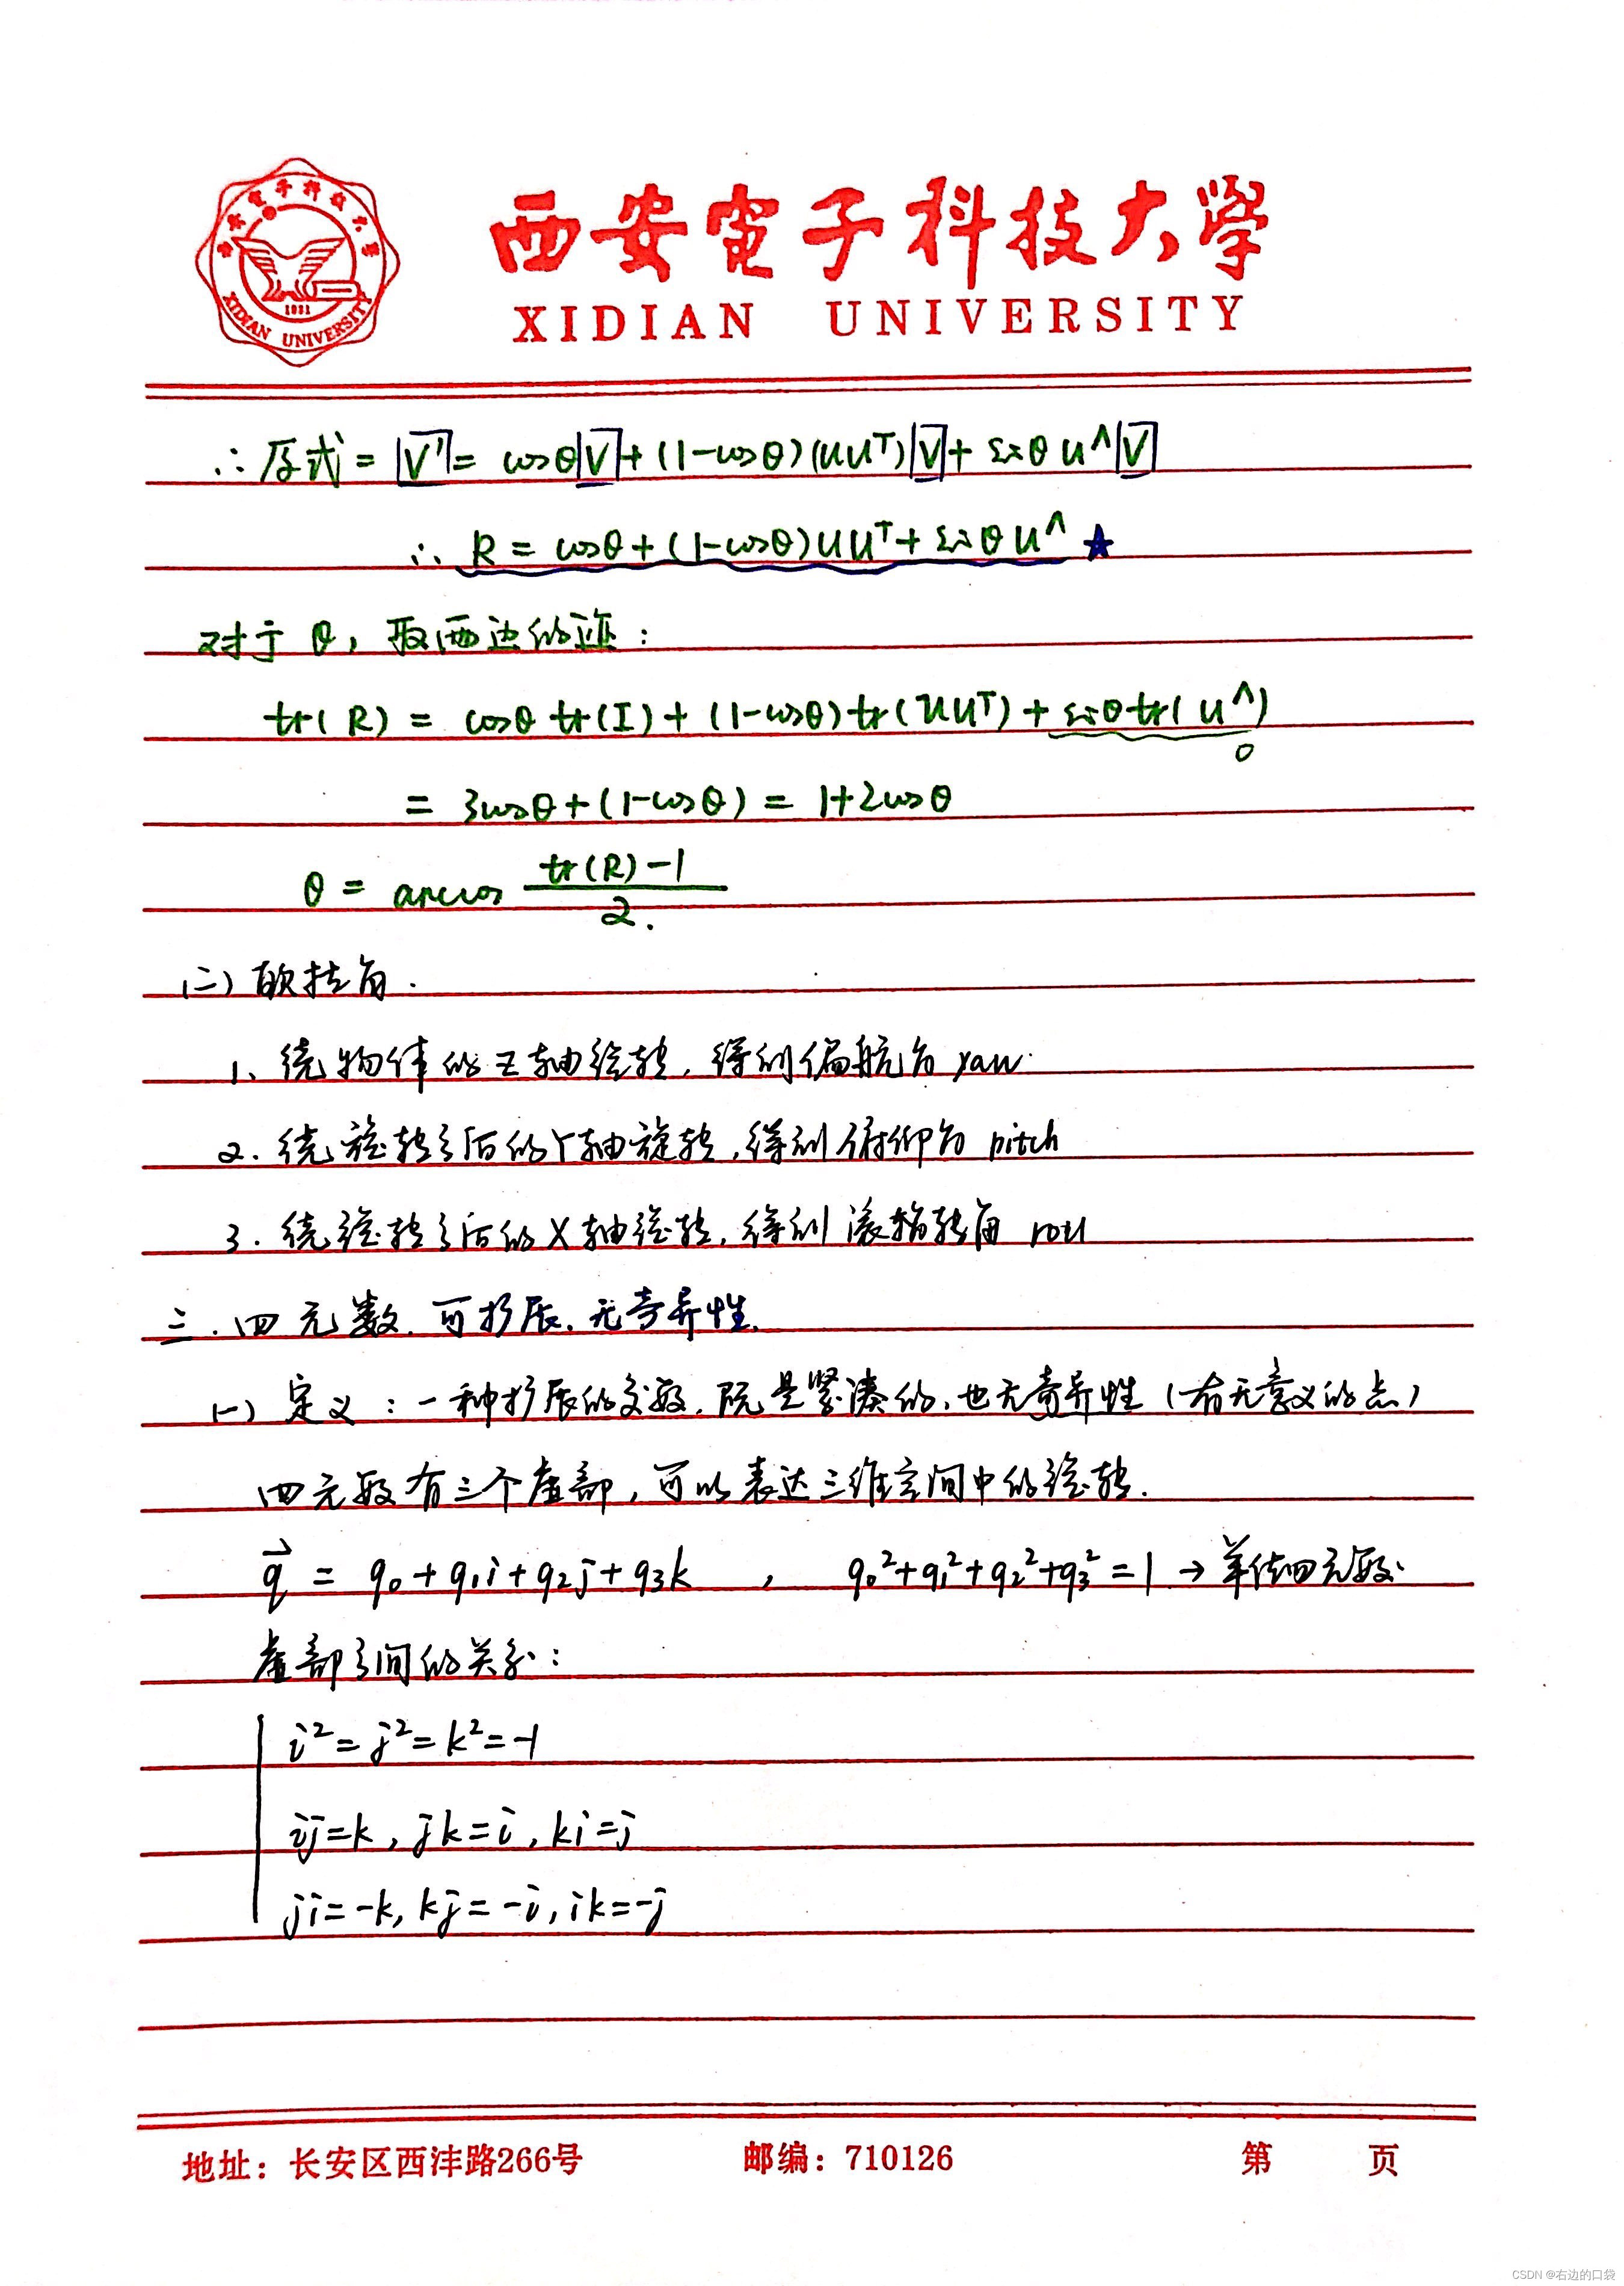 西安電子科技大學
XIDIAN UNIVERSITY
西安電子科技大學
1931
XIDIAN UNIVERSITY
∴ 原式 = V' = cosθ V + (1-cosθ)(uuᵀ) V + sinθ u^ V
∴ R = cosθ + (1-cosθ)uuᵀ + sinθ u^ ★
对于 θ, 取两边的迹:
tr(R) = cosθ tr(I) + (1-cosθ) tr(uuᵀ) + sinθ tr(u^)
0
= 3cosθ + (1-cosθ) = 1+2cosθ
θ = arccos (tr(R)-1)/2.
(二) 欧拉角.
1、绕物体的Z轴旋转, 得到偏航角 yaw.
2. 绕旋转之后的Y轴旋转, 得到俯仰角 pitch
3. 绕旋转之后的X轴旋转, 得到滚转角 roll
三. 四元数. 可扩展、无奇异性.
(一) 定义: 一种扩展的复数. 既是紧凑的, 也无奇异性 (有无意义的点)
四元数有三个虚部, 可以表达三维空间中的旋转.
q⃗ = q₀ + q₁i + q₂j + q₃k , q₀² + q₁² + q₂² + q₃² = 1 → 单位四元数.
虚部之间的关系:
i² = j² = k² = -1
ij=k, jk=i, ki=j
ji=-k, kj=-i, ik=-j
地址：长安区西沣路266号 邮编：710126 第 页
CSDN @右边的口袋